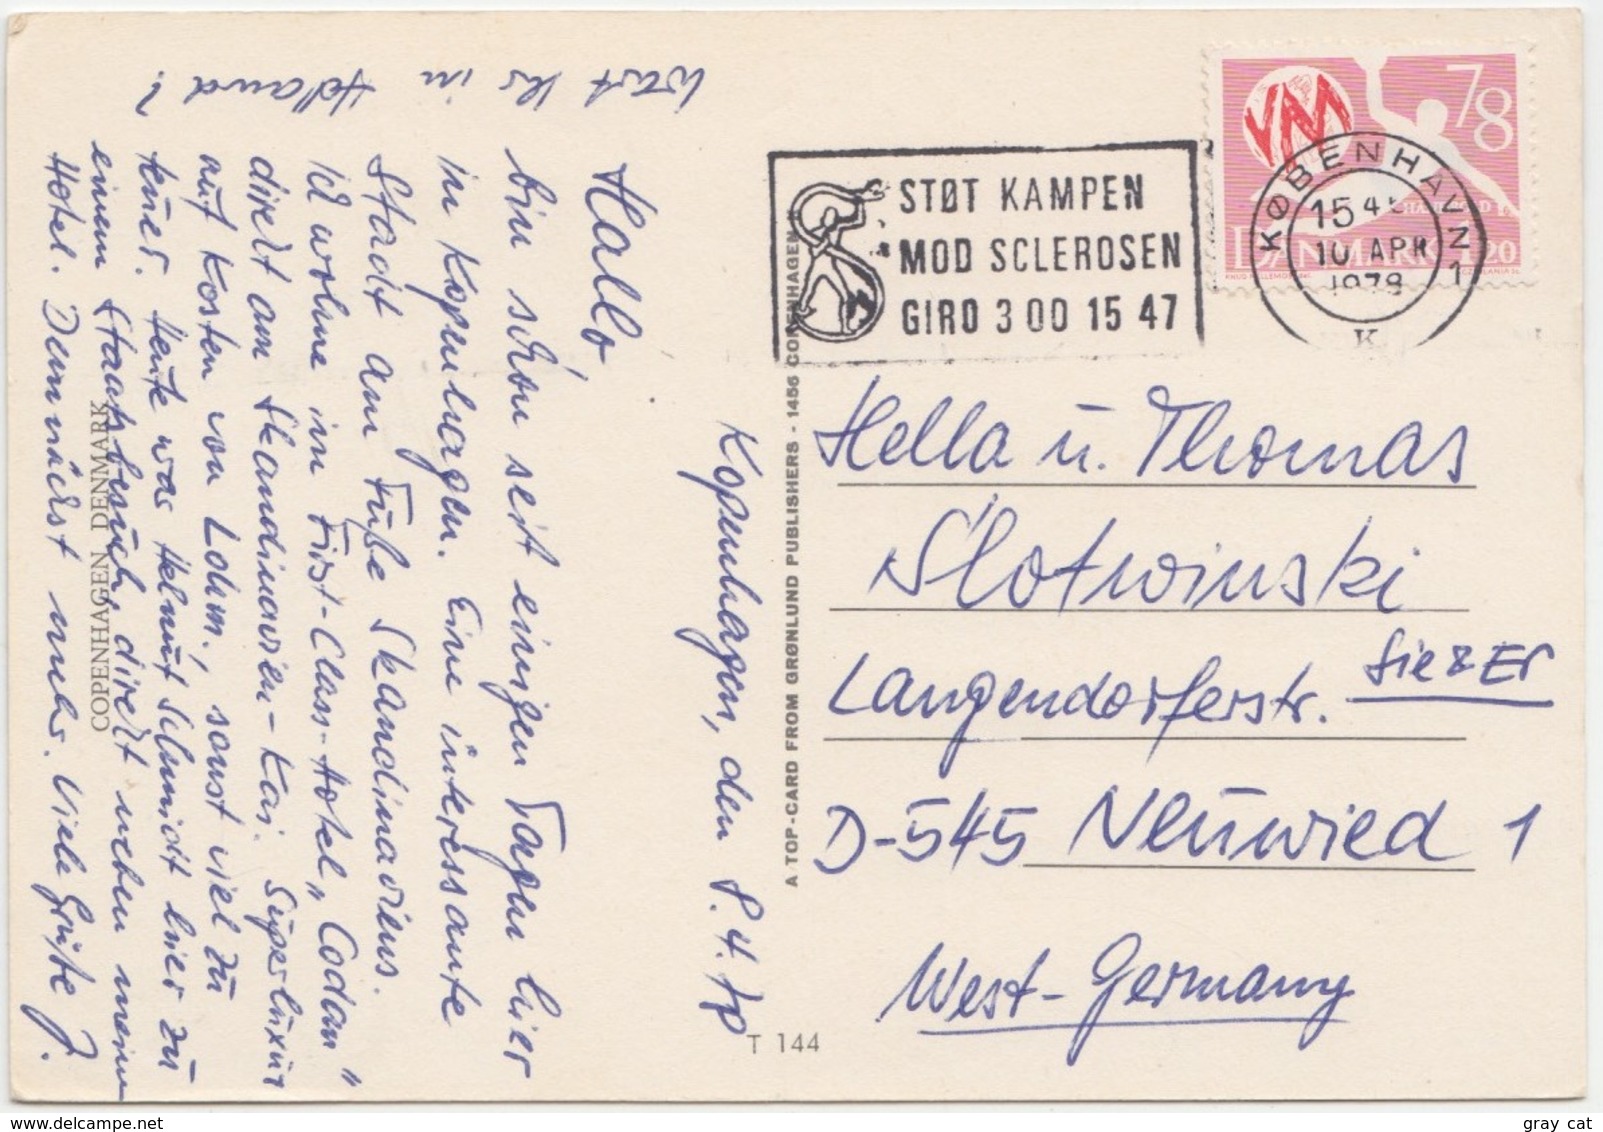 Wart Ihr in Holland ?
Kopenhagen, den 8.4.78
Hallo,
bin schon seit einigen Tagen hier
in Kopenhagen. Eine interessante
Stadt am Fuße Skandinaviens.
Ich wohne im First-Class-Hotel „Codan"
direkt am Skandinavien-Kai. Superluxur
auf Kosten von Lohm., sonst viel zu
teuer. Heute war Helmut Schmidt hier zu
einem Staatsbesuch, direkt neben meinem
Hotel. Demnächst mehr. Viele Grüße J.
COPENHAGEN DENMARK
A TOP-CARD FROM GRØNLUND PUBLISHERS - 1456 COPENHAGEN
T 144
STØT KAMPEN
MOD SCLEROSEN
GIRO 3 00 15 47
VM
78
HÅNDBOLD
DANMARK 120
KØBENHAVN 1
15 45
10 APR
1978
K
Hella u. Thomas
Slotwinski
Langendorferstr.
D-545 Neuwied 1
West-Germany
gray cat